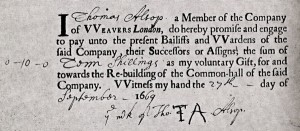 I Thomas Alsop. a Member of the Company
of VVEAVERS London, do hereby promise and engage
to pay unto the present Bailiffs and VVardens of the
said Company, their Successors or Assigns; the sum of
0-10-0 Tenn Shillings as my voluntary Gift, for and
towards the Re-building of the Common-hall of the said
Company. VVitness my hand the 27th - day of
September - 1669
ye mrk of Tho: TA Alsop.